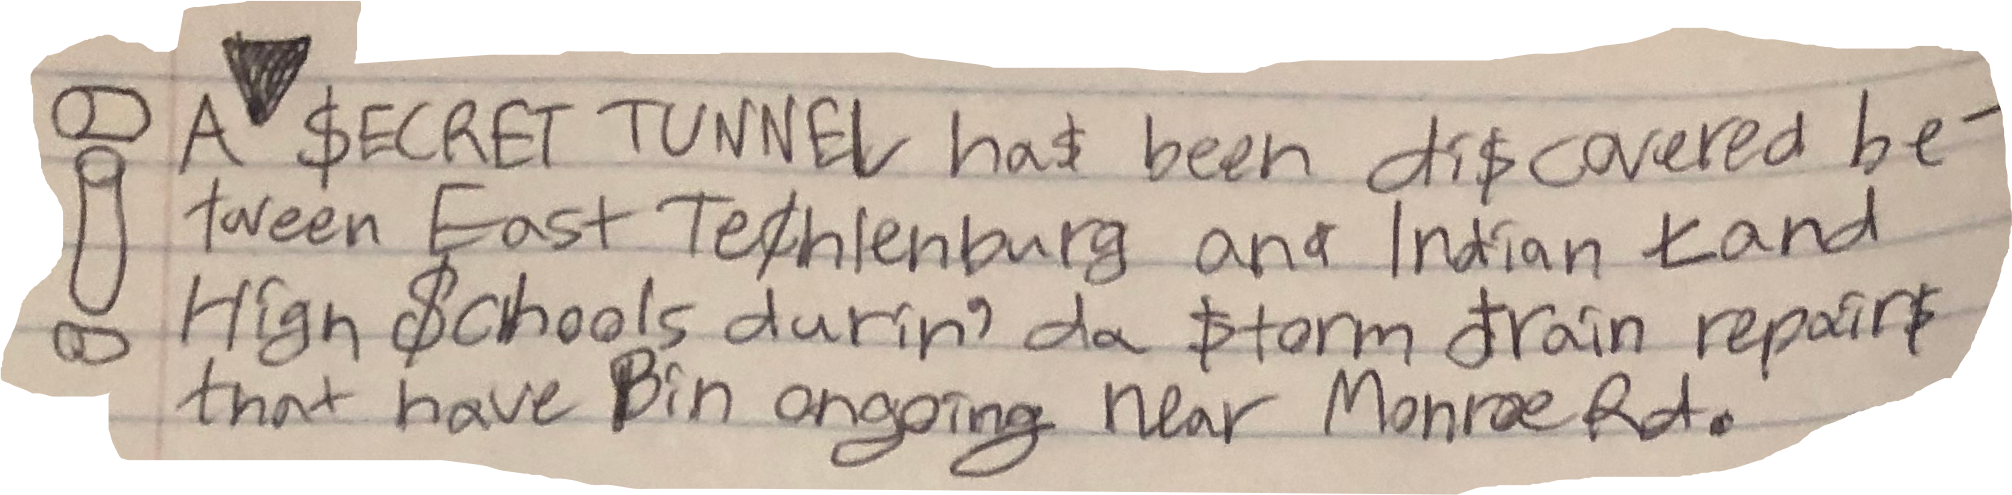 A $ECRET TUNNEL ha$ been di$covered be-
tween East Te¢hlenburg and Indian Land
High $chools durin' da $torm drain repair$
that have Bin ongoing near Monroe Rd.